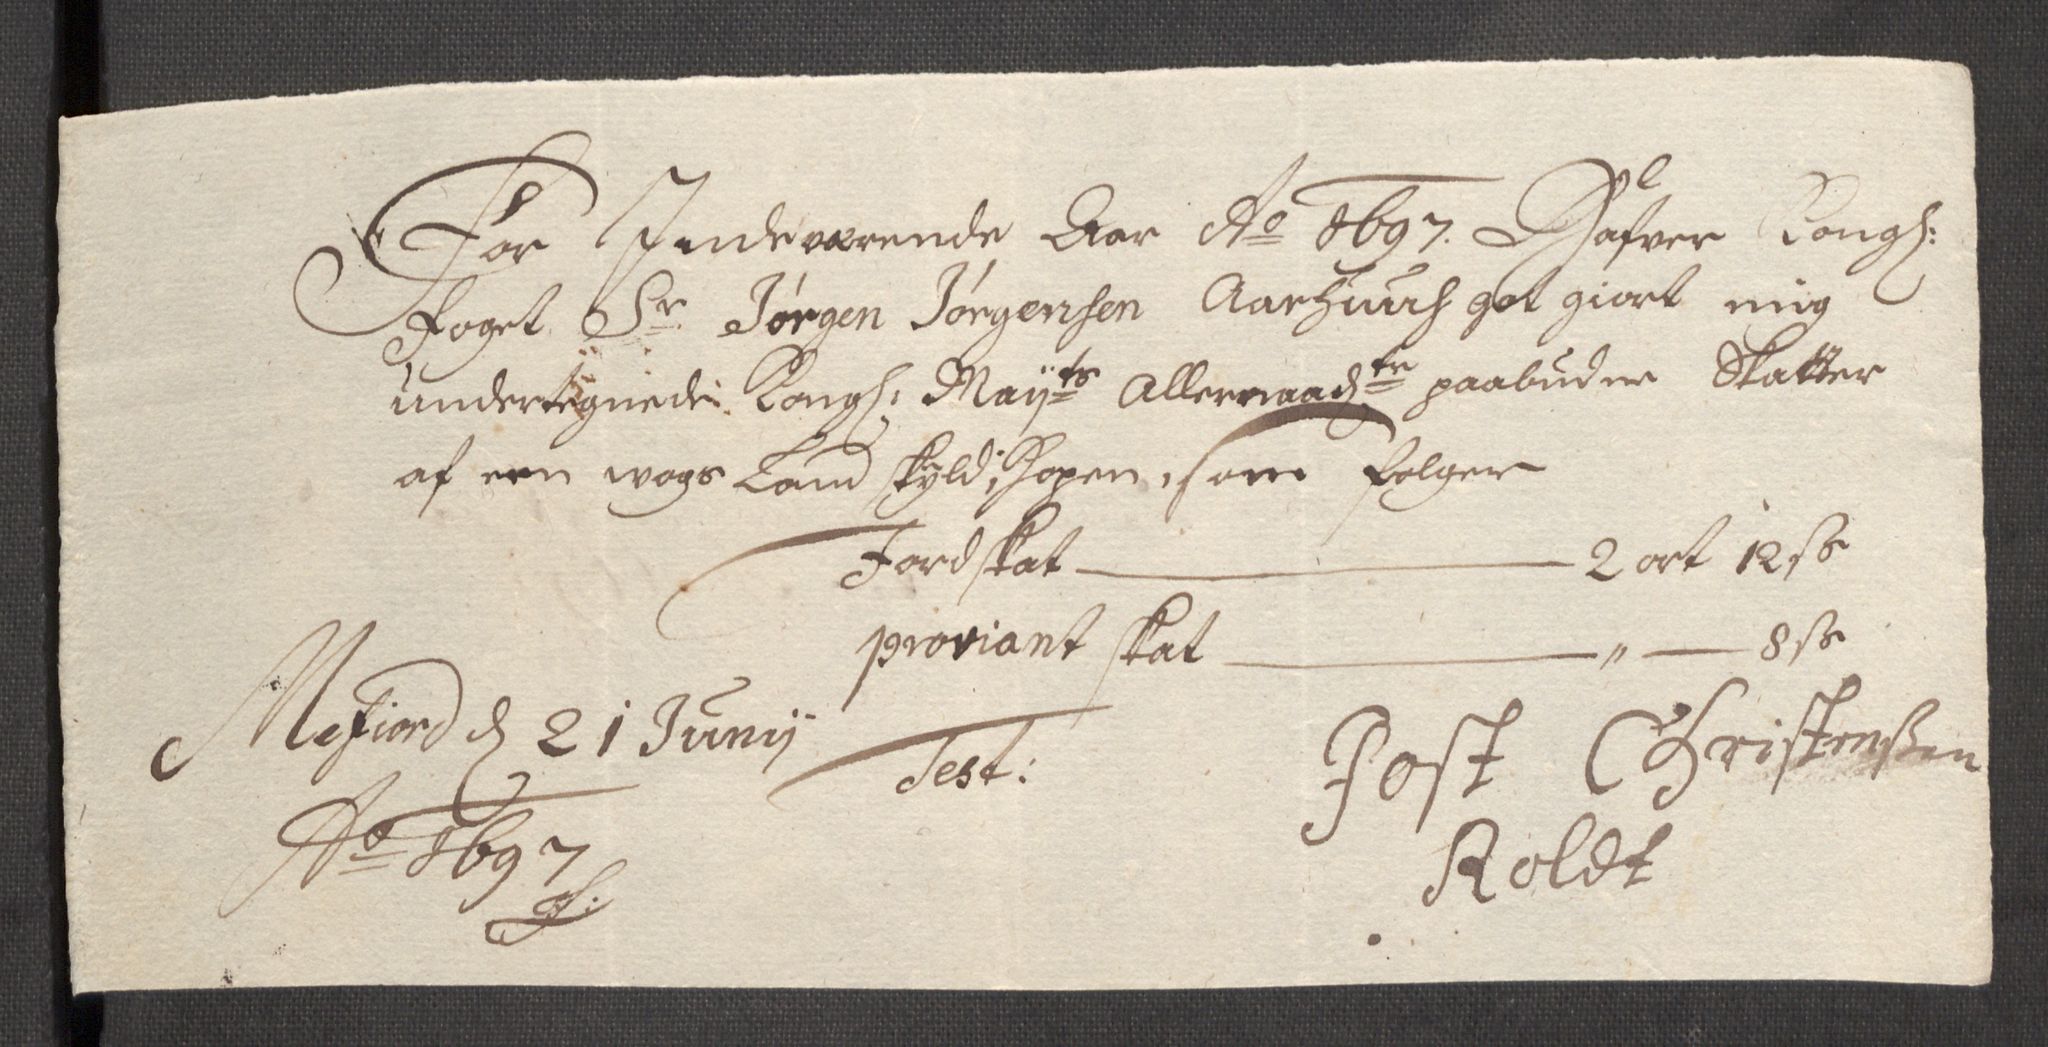 For Indeværende Aar Ao 1697. Hafver Kongl:
Foget Sr Jørgen Jørgensen Aarhuus got giort mig
undertegnede Kongl: Mayts Allernaadste paabudne Skatter
af een wogs Land skyld, Hopen, som følger
Jordskat — 2 ort 12 sß
proviant skat — " — 8 sß
Mefiord d 21 Junij
Test:
Post Christenßen
Roldt
Ao 1697